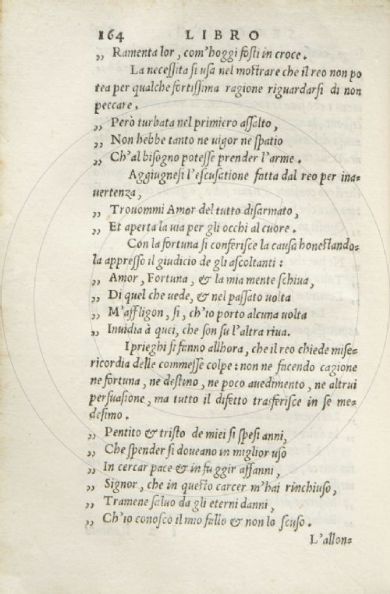 164 LIBRO
„ Ramenta lor, com'hoggi fosti in croce.
La necessita si usa nel mostrare che il reo non po
tea per qualche fortissima ragione riguardarsi di non
peccare.
„ Però turbata nel primiero assalto,
„ Non hebbe tanto ne uigor ne spatio
„ Ch'al bisogno potesse prender l'arme.
Aggiugnesi l'escusatione fatta dal reo per ina-
uertenza,
„ Trouommi Amor del tutto disarmato,
„ Et aperta la uia per gli occhi al cuore.
Con la fortuna si conferisce la causa honestando-
la appresso il giudicio de gli ascoltanti:
„ Amor, Fortuna, & la mia mente schiua,
„ Di quel che uede, & nel passato uolta
„ M'affligon, sì, ch'io porto alcuna uolta
„ Inuidia à quei, che son su l'altra riua.
I prieghi si fanno allhora, che il reo chiede mise-
ricordia delle commesse colpe: non ne facendo cagione
ne fortuna, ne destino, ne poco auedimento, ne altrui
persuasione, ma tutto il difetto trasferisce in se me-
desimo.
„ Pentito & tristo de miei sì spesi anni,
„ Che spender si doueano in miglior uso
„ In cercar pace & in fuggir affanni,
„ Signor, che in questo carcer m'hai rinchiuso,
„ Tramene saluo da gli eterni danni,
„ Ch'io conosco il mio fallo & non lo scuso.
L'allon-